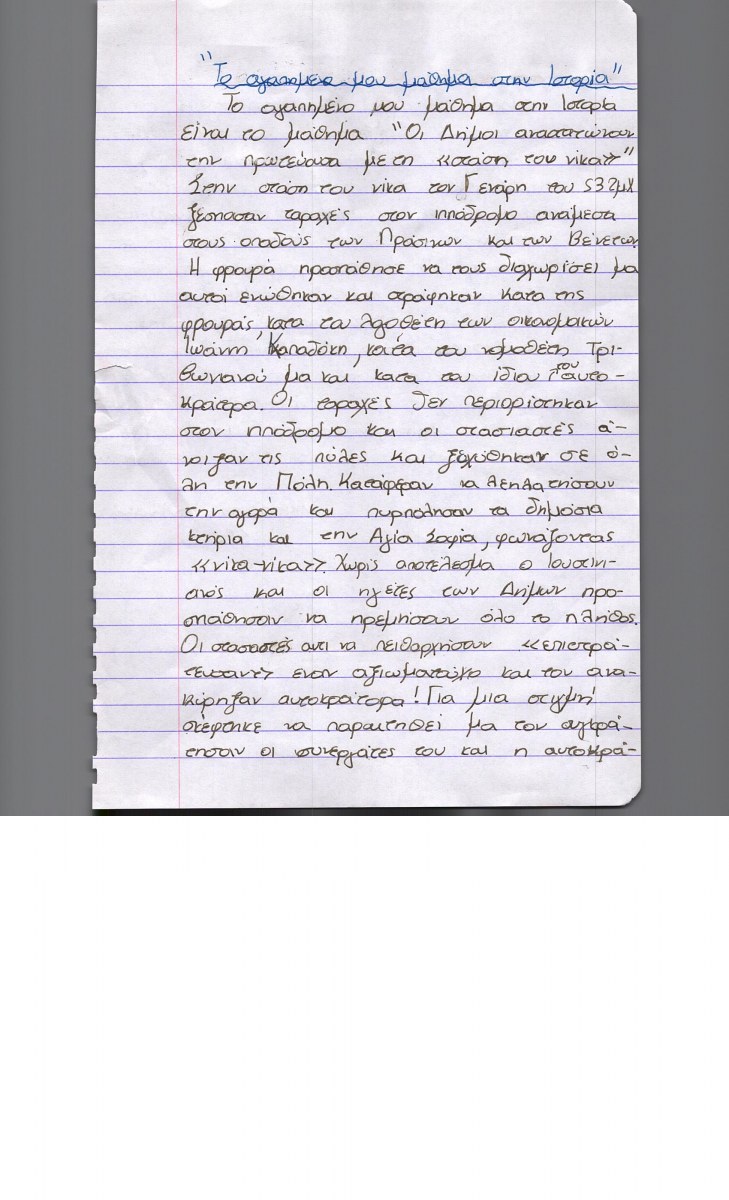 "Το αγαπημένο μου μάθημα στην Ιστορία"
Το αγαπημένο μου μάθημα στην Ιστορία
είναι το μάθημα "Οι Δήμοι αναστατώνουν
την πρωτεύουσα με τη «στάση του νίκα»"
Στην στάση του νίκα τον Γενάρη του 532μΧ
ξέσπασαν ταραχές στον ιππόδρομο ανάμεσα
στους οπαδούς των Πράσινων και των Βένετων.
Η φρουρά προσπάθησε να τους διαχωρίσει μα
αυτοί ενώθηκαν και στράφηκαν κατα της
φρουράς, κατα του λγοθέτη των οικοομικών
Ιωάννη Καπαδόκη, κατά του νομοθέτη Τρι-
βωνιανού μα και κατα του ίδιου του αυτο-
κράτορα. Οι ταραχές δεν περιορίστηκαν
στον ιππόδρομο και οι στασιαστές ά-
νοιξαν τις πύλες και ξεχύθηκαν σε ό-
λη την Πόλη. Κατάφεραν να λεηλατήσουν
την αγορά και πυρπόλησαν τα δημόσια
κτήρια και την Αγία Σοφία, φωνάζοντας
«νίκα-νίκα». Χωρίς αποτέλεσμα ο Ιουστιν-
ανός και οι ηγέτες των Δήμων προ-
σπάθησαν να ηρεμήσουν όλο το πλήθος.
Οι στασαστές αντι να πειθαρχήσουν «επιστρά-
τευσαν» έναν αξιωματούχο και τον ανα-
κύρηξαν αυτοκράτορα! Για μια στιγμή
σκέφτηκε να παραιτηθεί μα τον
οι συνεργάτες του και η αυτοκρά-